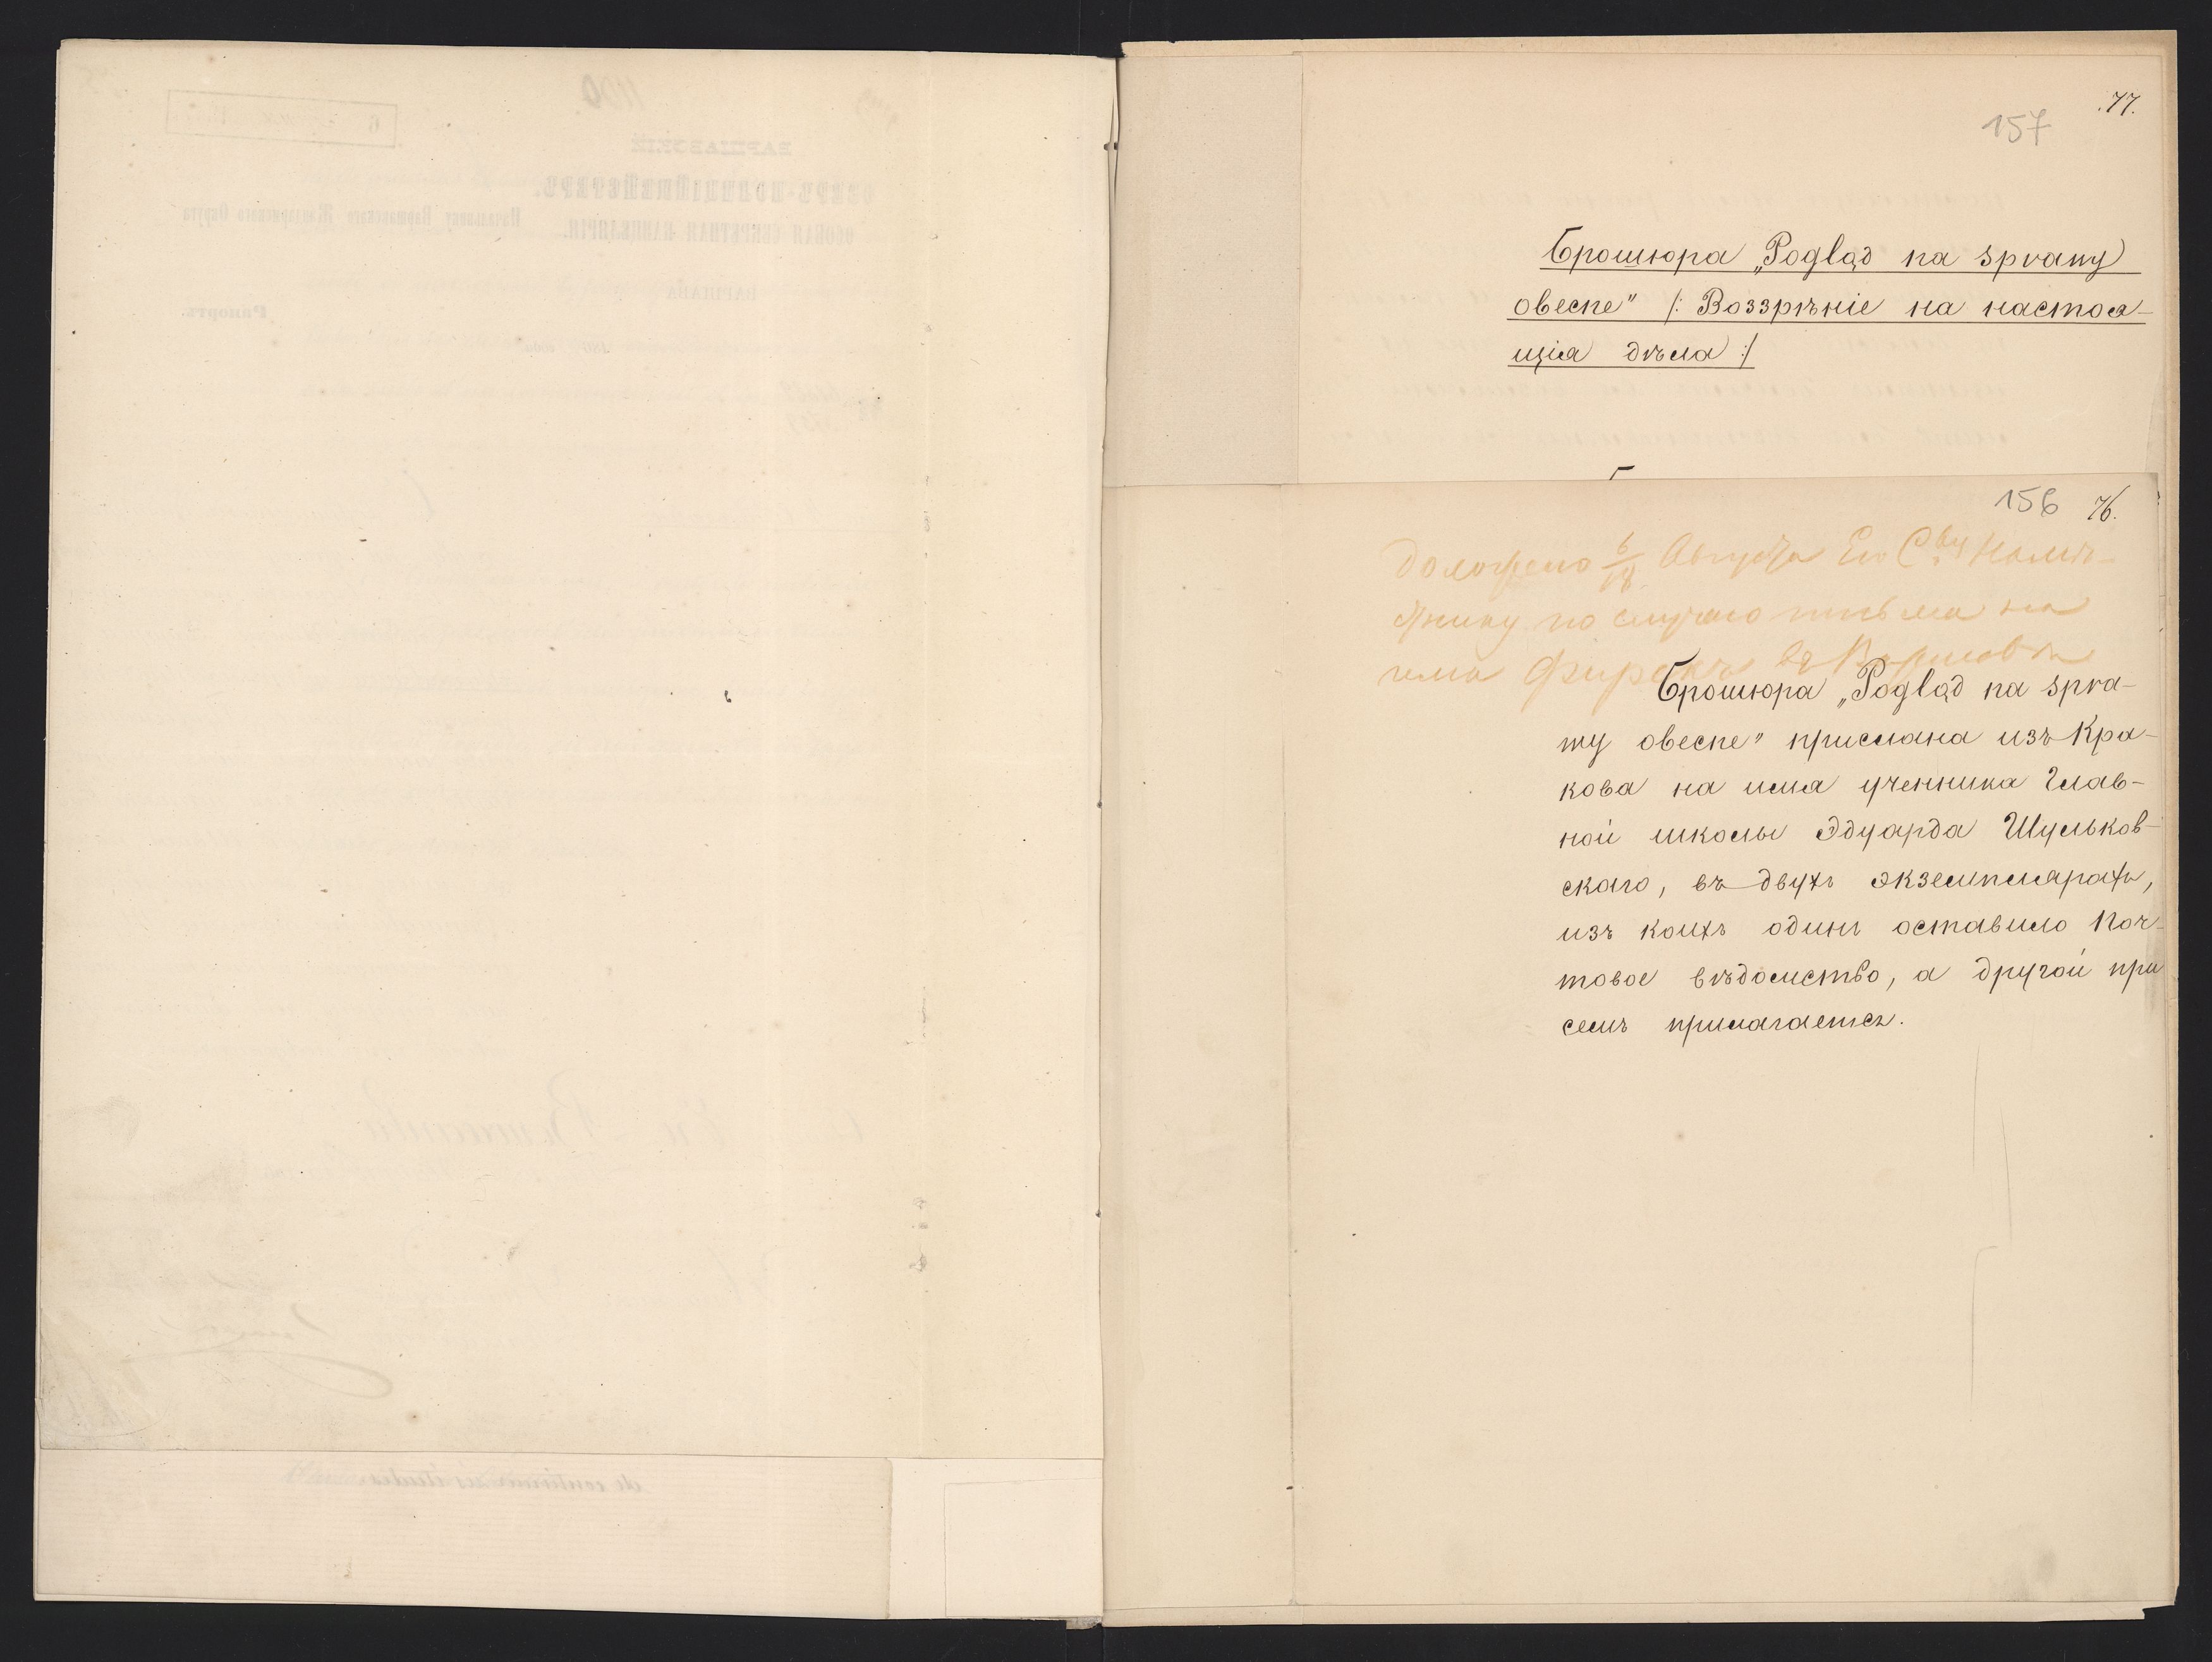 77.
157
Брошюра „Pogląd na sprawy
obecne" /: Воззрѣніе на настоя-
щія дѣла :/
156 76.
Доложено 6/18 Августа Его Св. Намѣ-
стнику по случаю письма на
имя въ Варшавѣ
Брошюра „Pogląd na spra-
wy obecne" прислана изъ Кра-
кова на имя ученника Глав-
ной школы Эдуарда Шульков-
скаго, въ двухъ экземплярахъ,
изъ коихъ одинъ оставило Поч-
товое вѣдомство, а другой при
семъ прилагается.